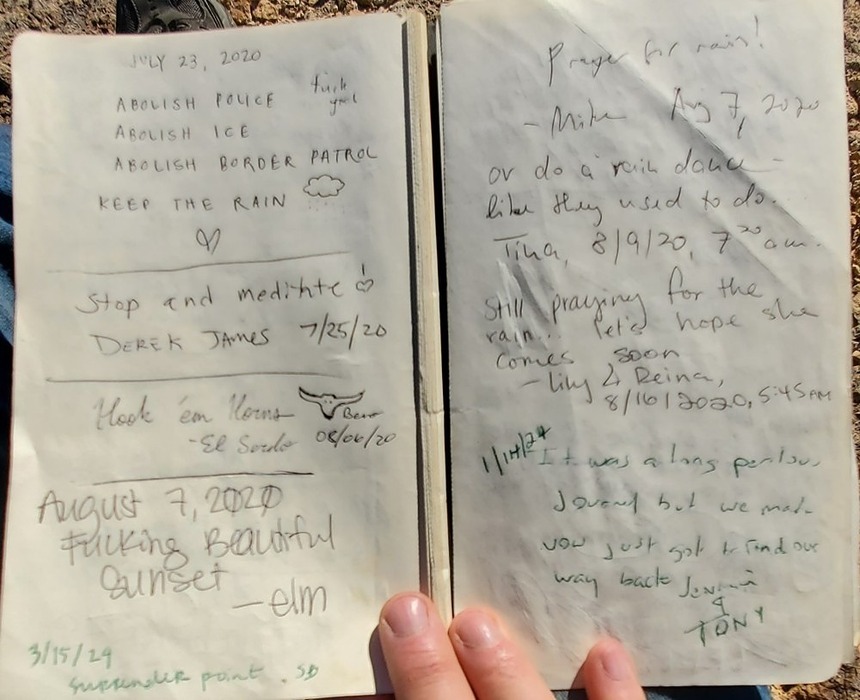 JULY 23, 2020
ABOLISH POLICE
ABOLISH ICE
ABOLISH BORDER PATROL
KEEP THE RAIN
Stop and meditate
DEREK JAMES 7/25/20
Hook 'em Horns
-El Sordo 08/06/20
August 7, 2020
Fucking Beautiful
Sunset
-elm
3/15/24
surrender point. SD
Prayer for rain!
- Mike Aug 7, 2020
or do a rain dance -
like they used to do.
Tina, 8/9/20, 7:20 am.
Still praying for the
rain... let's hope she
comes soon
- Lily & Reina,
8/16/2020, 5:45 AM
1/14/24 It was a long
but we made
now just got to find our
way back
&
TONY